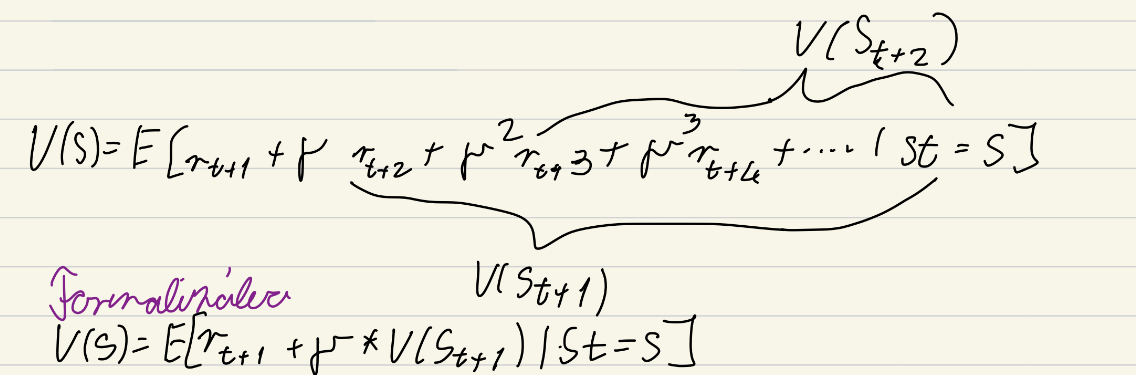 V(S_{t+2})
V(s) = E[r_{t+1} + γ r_{t+2} + γ² r_{t+3} + γ³ r_{t+4} + .... | St = S]
V(S_{t+1})
Formalizálva
V(s) = E[r_{t+1} + γ * V(S_{t+1}) | St = s]